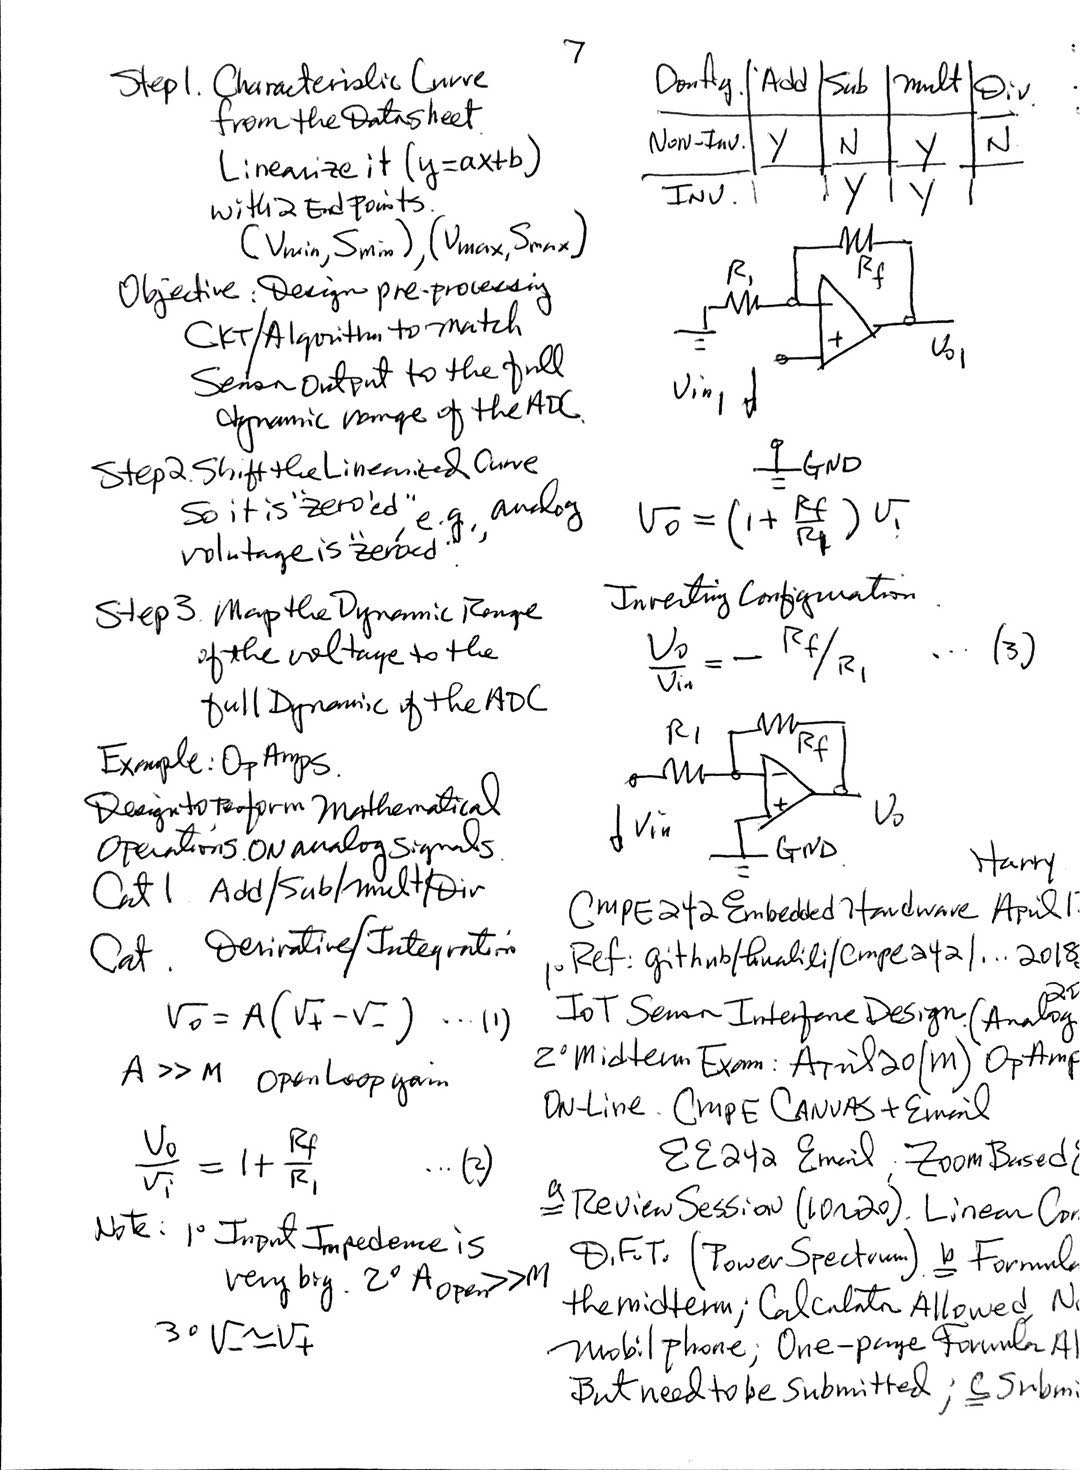 7
Step1. Characteristic Curve
from the Datasheet
Linearize it (y=ax+b)
with 2 End Points.
(Vmin, Smin), (Vmax, Smax)
Objective: Design pre-processing
CKT/Algorithm to match
Sensor Output to the full
dynamic range of the ADC.
Step2. Shift the Linearized Curve
So it is "zero'ed", e.g., analog
volutage is "zeroed".
Step 3. Map the Dynamic Range
of the voltage to the
full Dynamic of the ADC
Example: Op Amps.
Design to Perform Mathematical
Operations ON analog signals.
Cat 1 Add/Sub/mult/Div
Cat. Derivative/Integration
Vo = A(V+ - V-) ...(1)
A >> M Open Loop gain
Vo/Vi = 1 + Rf/R1 ...(2)
Note: 1° Input Impedence is
very big. 2° Aopen >> M
3° V- ≃ V+
Config. | Add | Sub | mult | Div.
Non-Inv. | Y | N | Y | N
INV. | | Y | Y |
R1
Rf
+
Vin1
Vo1
GND
Vo = (1 + Rf/R1) Vi
Inverting Configuration.
Vo/Vin = - Rf/R1 ... (3)
R1
Rf
-
+
Vin
Vo
GND
Harry
CMPE242 Embedded Hardware April
1° Ref: github/hualili/Cmpe242/...2018
IoT Sensor Interface Design. (Analog
2° Midterm Exam: April 20 (M) OpAmp
ON-Line. CMPE CANVAS + Email
EE242 Email, Zoom Based
a Review Session (10~20). Linear
D.F.T. (Power Spectrum) b Formula
the midterm; Calculator Allowed,
mobil phone; One-page Formula
But need to be submitted; c